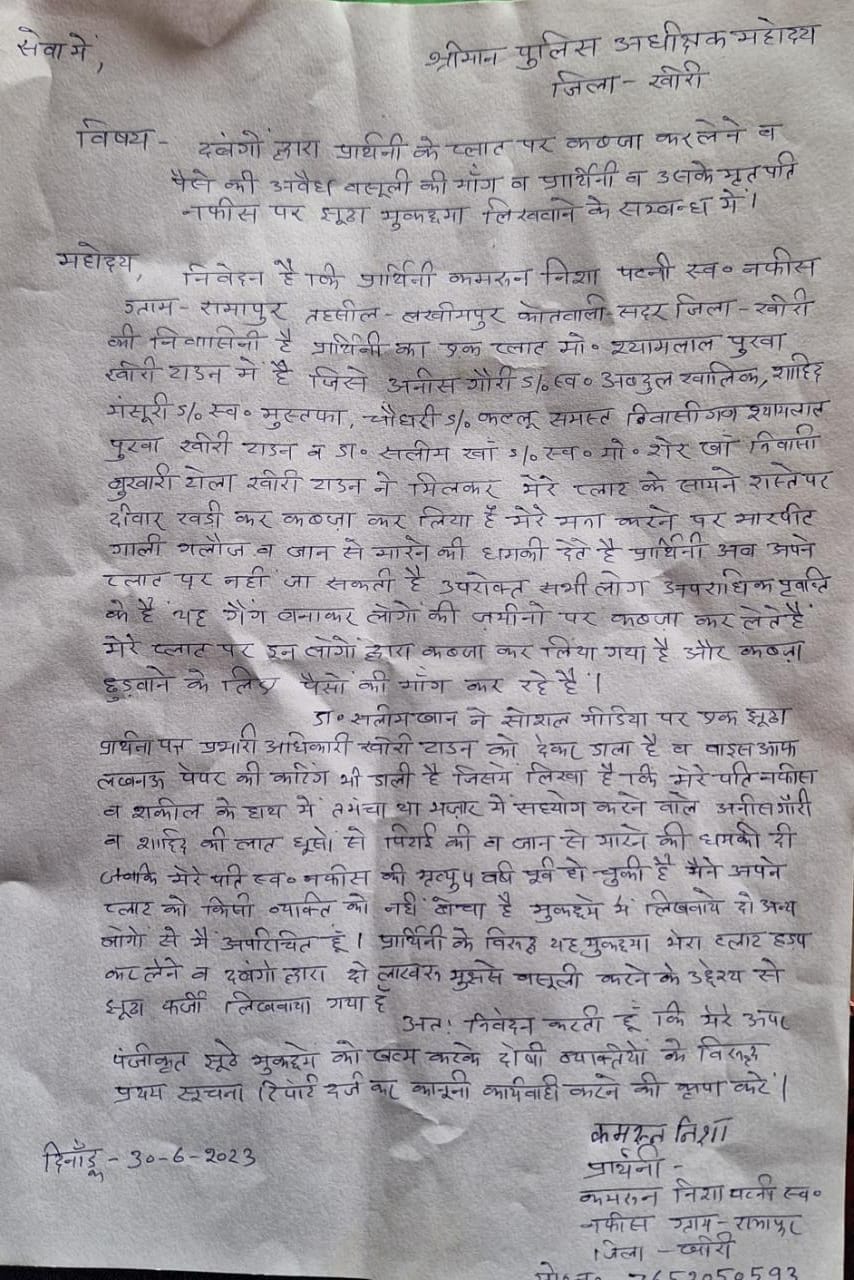 सेवा में,
श्रीमान पुलिस अधीक्षक महोदय
जिला - खीरी
विषय - दबंगों द्वारा प्रार्थिनी के प्लाट पर कब्जा कर लेने व
पैसे की अवैध वसूली की माँग व प्रार्थिनी व उसके मृत पति
नफीस पर झूठा मुकद्दमा लिखवाने के सम्बन्ध में।
महोदय,
निवेदन है कि प्रार्थिनी कमरून निशा पत्नी स्व० नफीस
ग्राम - रामापुर तहसील - लखीमपुर कोतवाली - सदर जिला - खीरी
की निवासिनी है प्रार्थिनी का एक प्लाट मो० श्यामलाल पुरवा
खीरी टाउन में है जिसे अनीस गौरी S/o स्व० अब्दुल खालिक, शाहिद
मंसूरी S/o स्व० मुस्तफा, चौधरी S/o कल्लू समस्त निवासीगण श्यामलाल
पुरवा खीरी टाउन व डा० सलीम खां S/o स्व० मो० शेर खां निवासी
बुखारी टोला खीरी टाउन ने मिलकर मेरे प्लाट के सामने रास्ते पर
दीवार खडी कर कब्ज़ा कर लिया है मेरे मना करने पर मारपीट
गाली गलौज व जान से मारने की धमकी देते है प्रार्थिनी अब अपने
प्लाट पर नहीं जा सकती है उपरोक्त सभी लोग अपराधिक प्रवृत्ति
के है यह गैंग बनाकर लोगों की ज़मीनो पर कब्जा कर लेते हैं
मेरे प्लाट पर इन लोगों द्वारा कब्जा कर लिया गया है और कब्ज़ा
छुड़वाने के लिए पैसों की माँग कर रहे है।
डा० सलीम खान ने सोशल मीडिया पर एक झूठा
प्रार्थना पत्र प्रभारी अधिकारी खीरी टाउन को देकर डाला है व वाइस आफ
लखनऊ पेपर की कटिंग भी डाली है जिसमें लिखा है कि मेरे पति नफीस
व शकील के हाथ में तमंचा था मज़ार में सहयोग करने वाले अनीस गौरी
व शाहिद की लात घूसो से पिटाई की व जान से मारने की धमकी दी
जबकि मेरे पति स्व० नफीस की मृत्यु 4 वर्ष पूर्व हो चुकी है मैने अपने
प्लाट को किसी व्यक्ति को नहीं बेचा है मुकद्दमे में लिखवाये दो अन्य
लोगो से मैं अपरिचित हूं। प्रार्थिनी के विरूद्ध यह मुकद्दमा मेरा प्लाट हड़प
कर लेने व दबंगो द्वारा दो लाख रू मुझसे वसूली करने के उद्देश्य से
झूठा फर्जी लिखवाया गया है
अतः निवेदन करती हूं कि मेरे ऊपर
पंजीकृत झूठे मुकद्दमे को खत्म करके दोषी व्यक्तियों के विरूद्ध
प्रथम सूचना रिपोर्ट दर्ज कर कानूनी कार्यवाही करने की कृपा करें।
कमरून निशा
दिनाँङ्क - 30-6-2023
प्रार्थिनी -
कमरून निशा पत्नी स्व०
नफीस ग्राम - रामापुर
जिला - खीरी